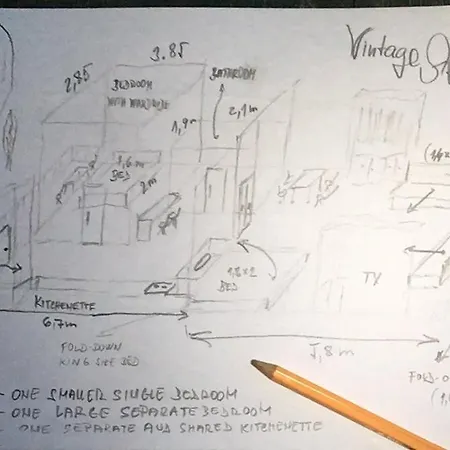 Vintage
3.85
2,85
BEDROOM
WITH WARDROBE
BATHROOM
2,1m
1,9m
1,6m
BED
2m
1,8x2
BED
TV
KITCHENETTE
6,7m
5,8m
FOLD-DOWN
KING SIZE BED
FOLD-O
- ONE SMALLER SINGLE BEDROOM
- ONE LARGE SEPARATE BEDROOM
- ONE SEPARATE AND SHARED KITCHENETTE